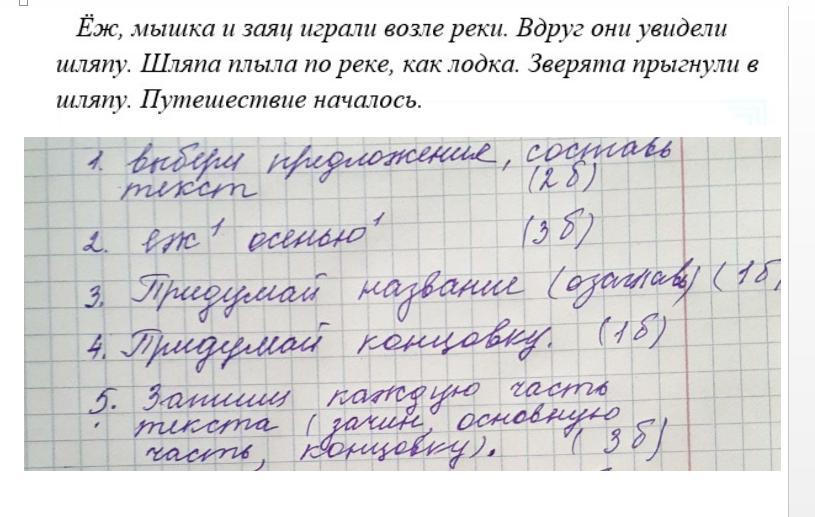 Ёж, мышка и заяц играли возле реки. Вдруг они увидели
шляпу. Шляпа плыла по реке, как лодка. Зверята прыгнули в
шляпу. Путешествие началось.
1. выбери предложения, составь
текст (2 б)
2. еж¹ осенью¹ (3 б)
3. Придумай название (озаглавь) (1б)
4. Придумай концовку. (1б)
5. Запиши каждую часть
текста (зачин, основную
часть, концовку). (3б)